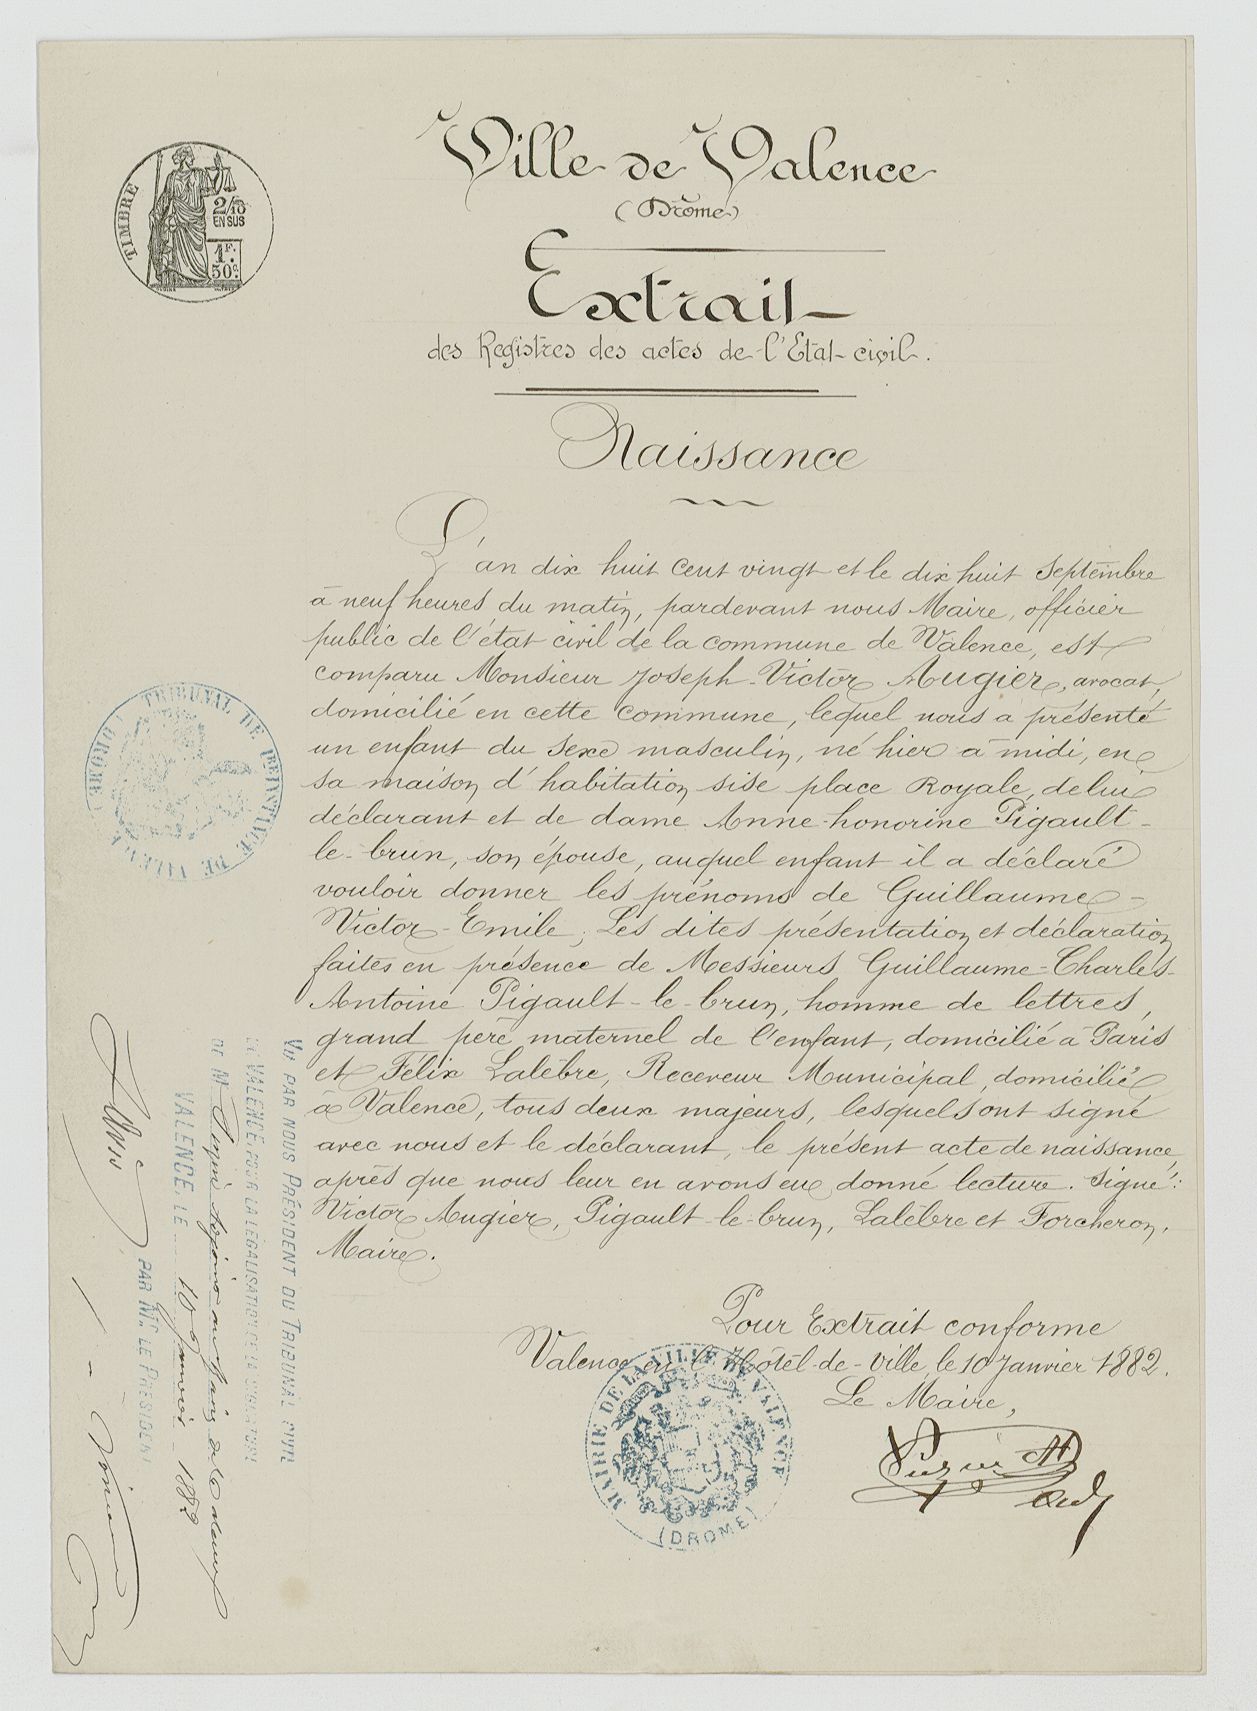 Ville de Valence
(Drôme)
Extrait
des Registres des actes de l'Etat-civil.
Naissance
L'an dix huit cent vingt et le dix huit Septembre
à neuf heures du matin, pardevant nous Maire, officier
public de l'état civil de la commune de Valence, est
comparu Monsieur Joseph-Victor Augier, avocat,
domicilié en cette commune, lequel nous a présenté
un enfant du sexe masculin, né hier à midi, en
sa maison d'habitation sise place Royale, de lui
déclarant et de dame Anne-honorine Pigault-
le-brun, son épouse, auquel enfant il a déclaré
vouloir donner les prénoms de Guillaume-
Victor-Emile; Les dites présentation et déclaration
faites en présence de Messieurs Guillaume-Charles-
Antoine Pigault-le-brun, homme de lettres,
grand père maternel de l'enfant, domicilié à Paris
et Félix Lalèbre, Receveur Municipal, domicilié
à Valence, tous deux majeurs, lesquels ont signé
avec nous et le déclarant, le présent acte de naissance,
après que nous leur en avons eu donné lecture. Signé:
Victor Augier, Pigault-le-brun, Lalèbre et Forcheron,
Maire.
Pour Extrait conforme
Valence en l'Hôtel-de-Ville, le 10 Janvier 1882.
Le Maire,
MAIRIE DE LA VILLE DE VALENCE
(DROME)
TIMBRE
2/10
EN SUS
1F.
50c.
TRIBUNAL DE 1RE INSTANCE DE VALENCE (DROME)
VU PAR NOUS PRÉSIDENT DU TRIBUNAL CIVIL
DE VALENCE, POUR LA LÉGALISATION DE LA SIGNATURE
DE M.
VALENCE, LE 10 Janvier 1882
PAR Mr. LE PRÉSIDENT